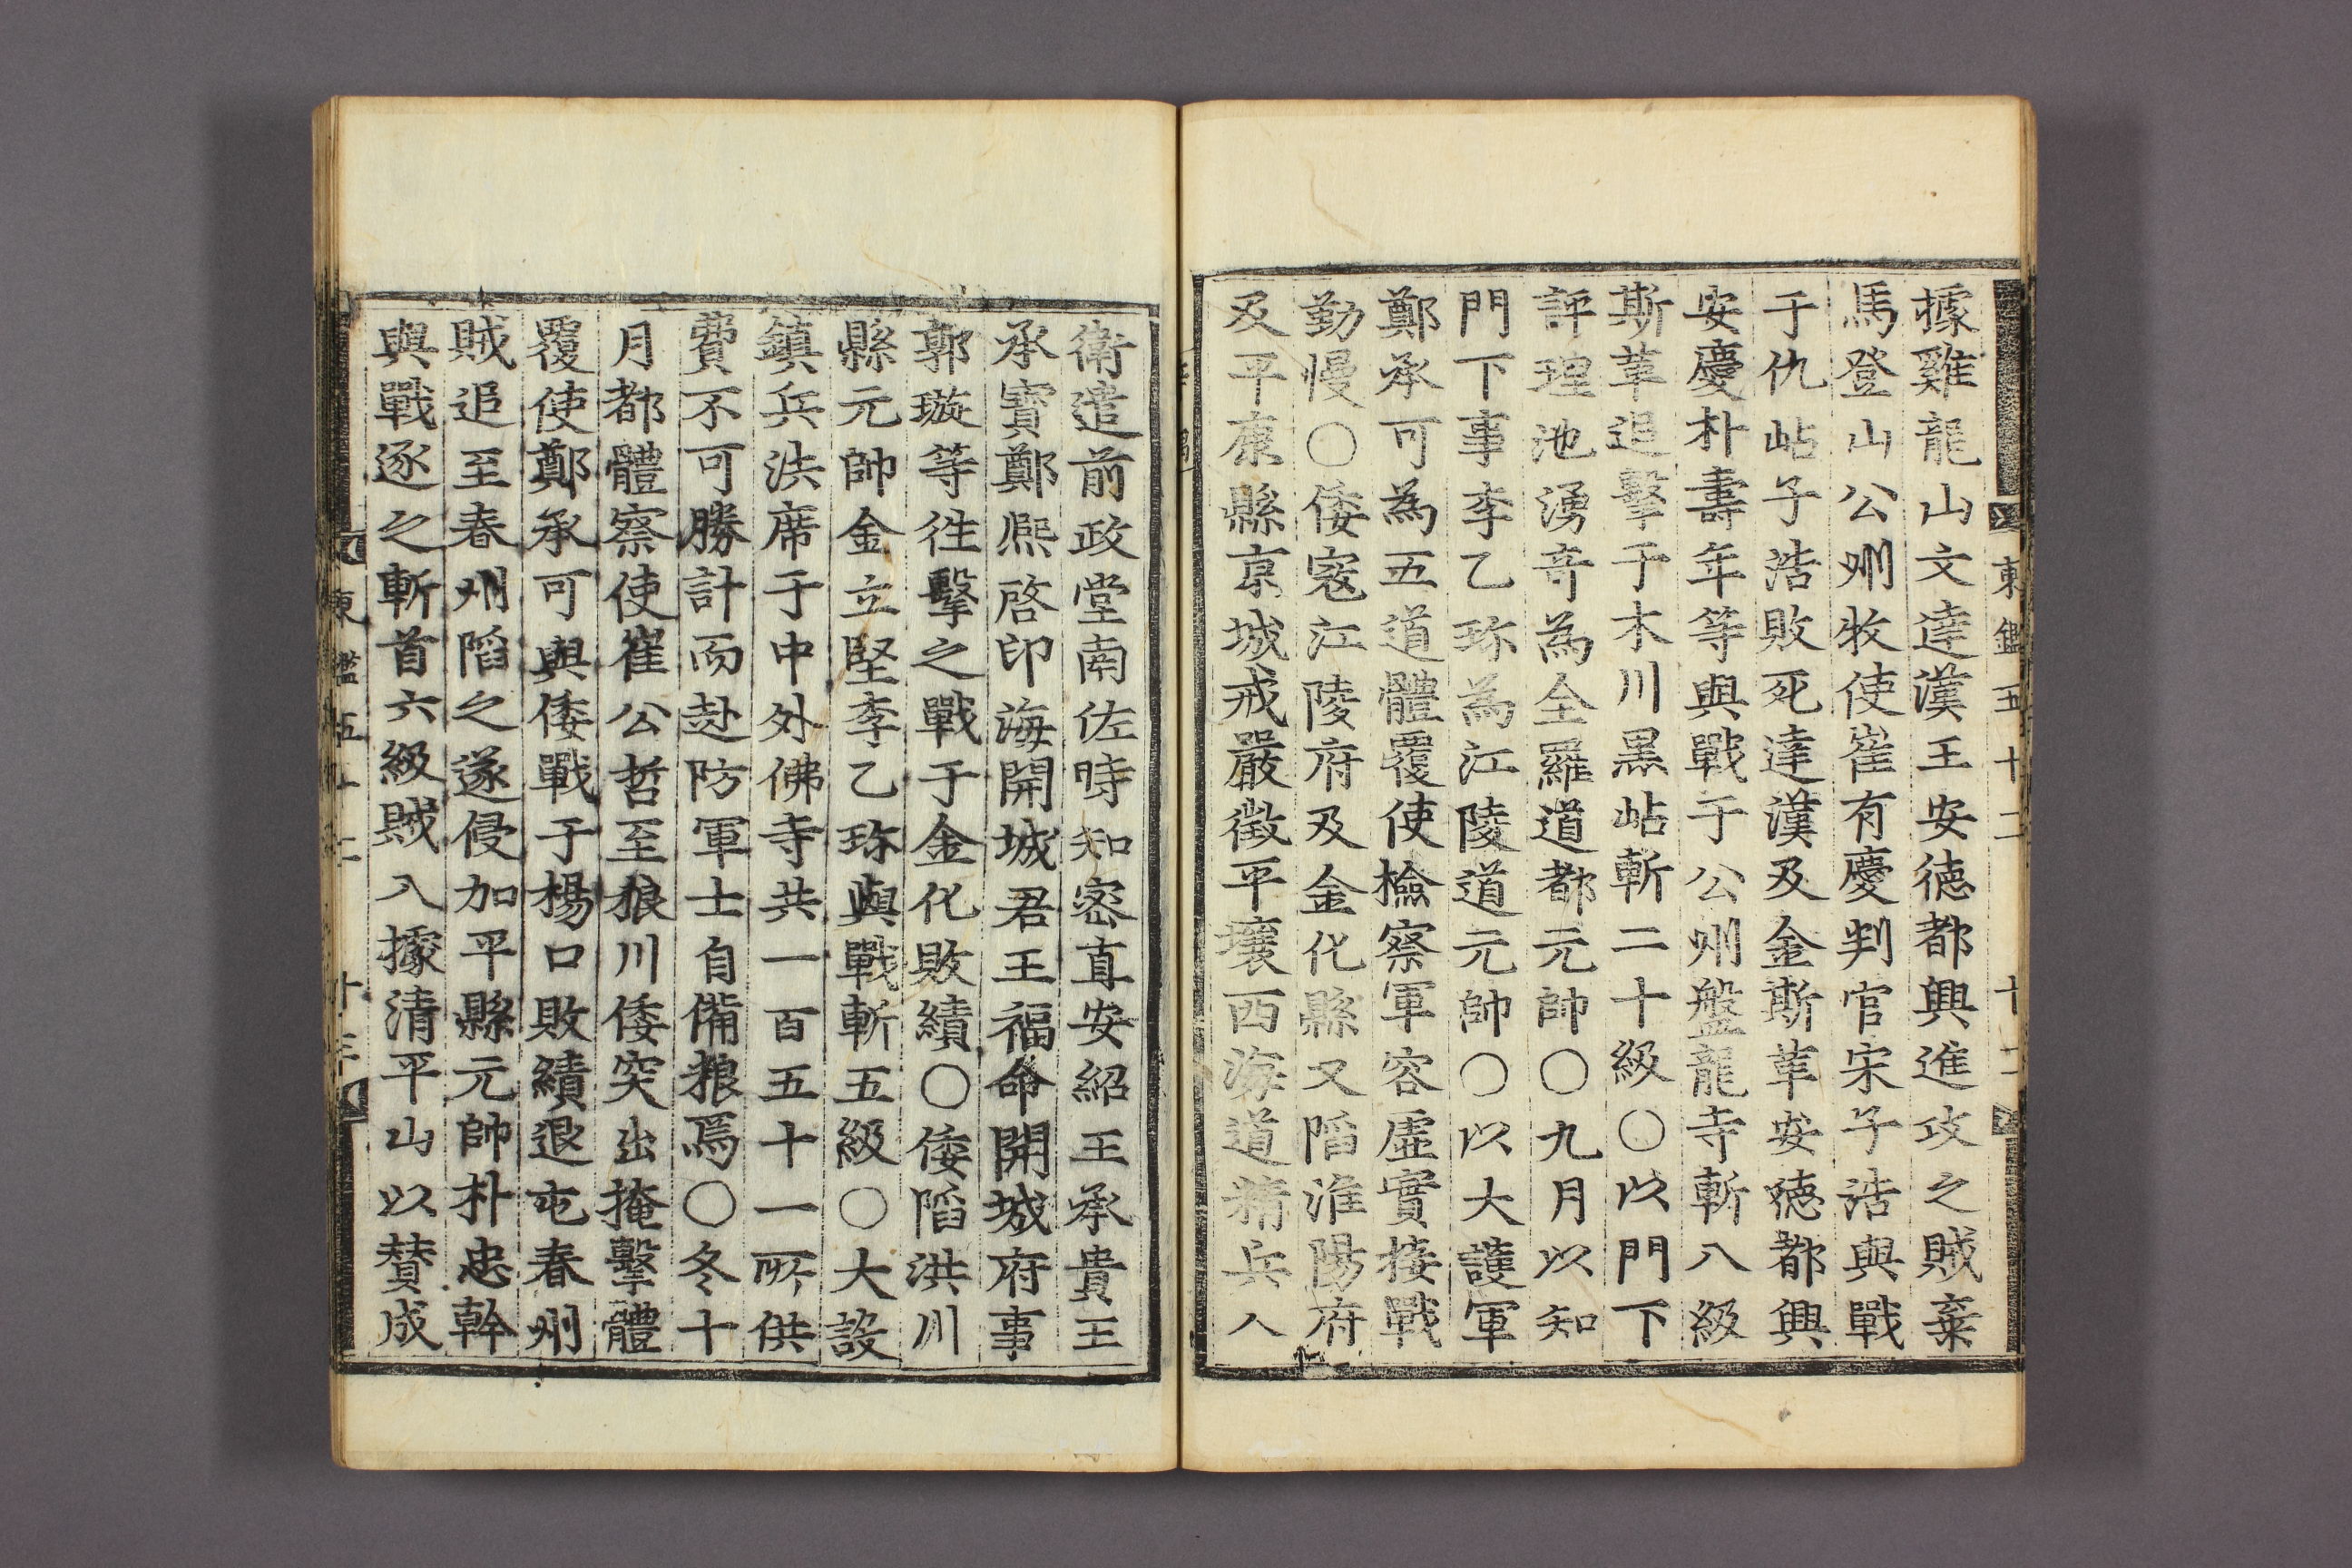 東鑑五十二 十二
據雞龍山文達漢王安德都興進攻之賊棄
馬登山公州牧使崔有慶判官宋子浩與戰
于仇岾子浩敗死達漢及金斯革安德都興
安慶朴壽年等與戰于公州盤龍寺斬八級
斯革追擊于木川黑岾斬二十級〇以門下
評理池湧奇為全羅道都元帥〇九月以知
門下事李乙珎為江陵道元帥〇以大護軍
鄭承可為五道體覆使檢察軍容虛實接戰
勤慢〇倭寇江陵府及金化縣又陷淮陽府
及平康縣京城戒嚴徵平壤西海道精兵入
衛遣前政堂南佐時知密直安紹王承貴王
承寶鄭熈啓印海開城君王福命開城府事
郭璇等徃擊之戰于金化敗績〇倭陷洪川
縣元帥金立堅李乙珎與戰斬五級〇大設
鎮兵法席于中外佛寺共一百五十一所供
費不可勝計而赴防軍士自備粮焉〇冬十
月都體察使崔公哲至狼川倭突出掩擊體
覆使鄭承可與倭戰于楊口敗績退屯春州
賊追至春州陷之遂侵加平縣元帥朴忠幹
與戰逐之斬首六級賊入據清平山以賛成
東鑑五十二 十三